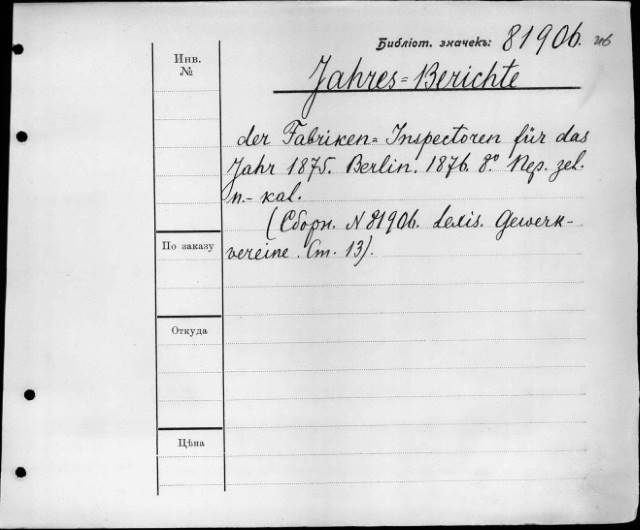 Библіот. значекъ: 81906.
Инв.
№
Jahres=Berichte
der Fabriken=Inspectoren für das
Jahr 1875. Berlin. 1876. 8.° Пер. zel.
n.-kal.
(Сборн. N 81906. Lexis. Gewerk-
vereine. Ст. 13).
По заказу
Откуда
Цѣна